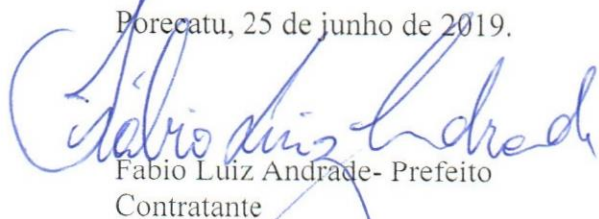 Porecatu, 25 de junho de 2019.
Fábio Luiz Andrade
Fabio Luiz Andrade- Prefeito
Contratante